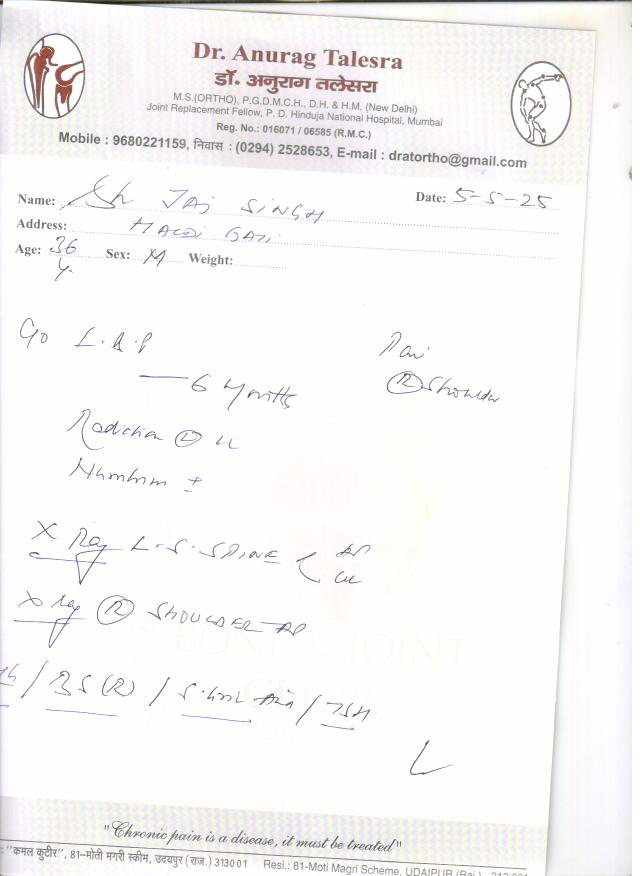 Dr. Anurag Talesra
डॉ. अनुराग तलेसरा
M.S.(ORTHO), P.G.D.M.C.H., D.H. & H.M. (New Delhi)
Joint Replacement Fellow, P. D. Hinduja National Hospital, Mumbai
Reg. No.: 016071 / 06585 (R.M.C.)
Mobile : 9680221159, निवास : (0294) 2528653, E-mail : dratortho@gmail.com
Name: Sh JAI SINGH Date: 5-5-25
Address: HALDI GATI
Age: 36 Y. Sex: M Weight:
C/o L.B.P Pain
— 6 Months (R) Shoulder
Radiation LL
Numbness ±
X Ray L.S. SPINE < AP
X Ray (R) SHOULDER AP
BS (R) / TSH
BONE JOINT
"Chronic pain is a disease, it must be treated"
"कमल कुटीर", 81-मोती मगरी स्कीम, उदयपुर (राज.) 313001 Resi.: 81-Moti Magri Scheme, UDAIPUR (Raj.)